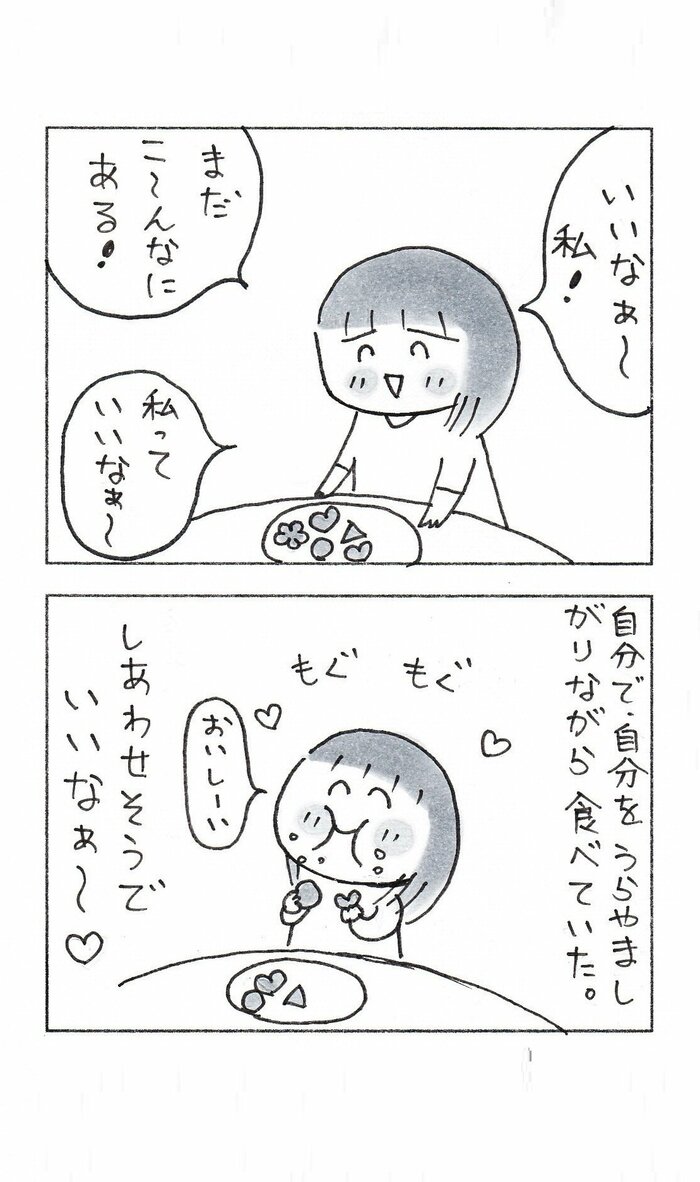 いいなぁ〜
私!
まだ
こ〜んなに
ある!
私って
いいなぁ〜
自分で自分をうらやまし
がりながら食べていた。
もぐ
もぐ
おいしーい
しあわせそうで
いいなぁ〜♡